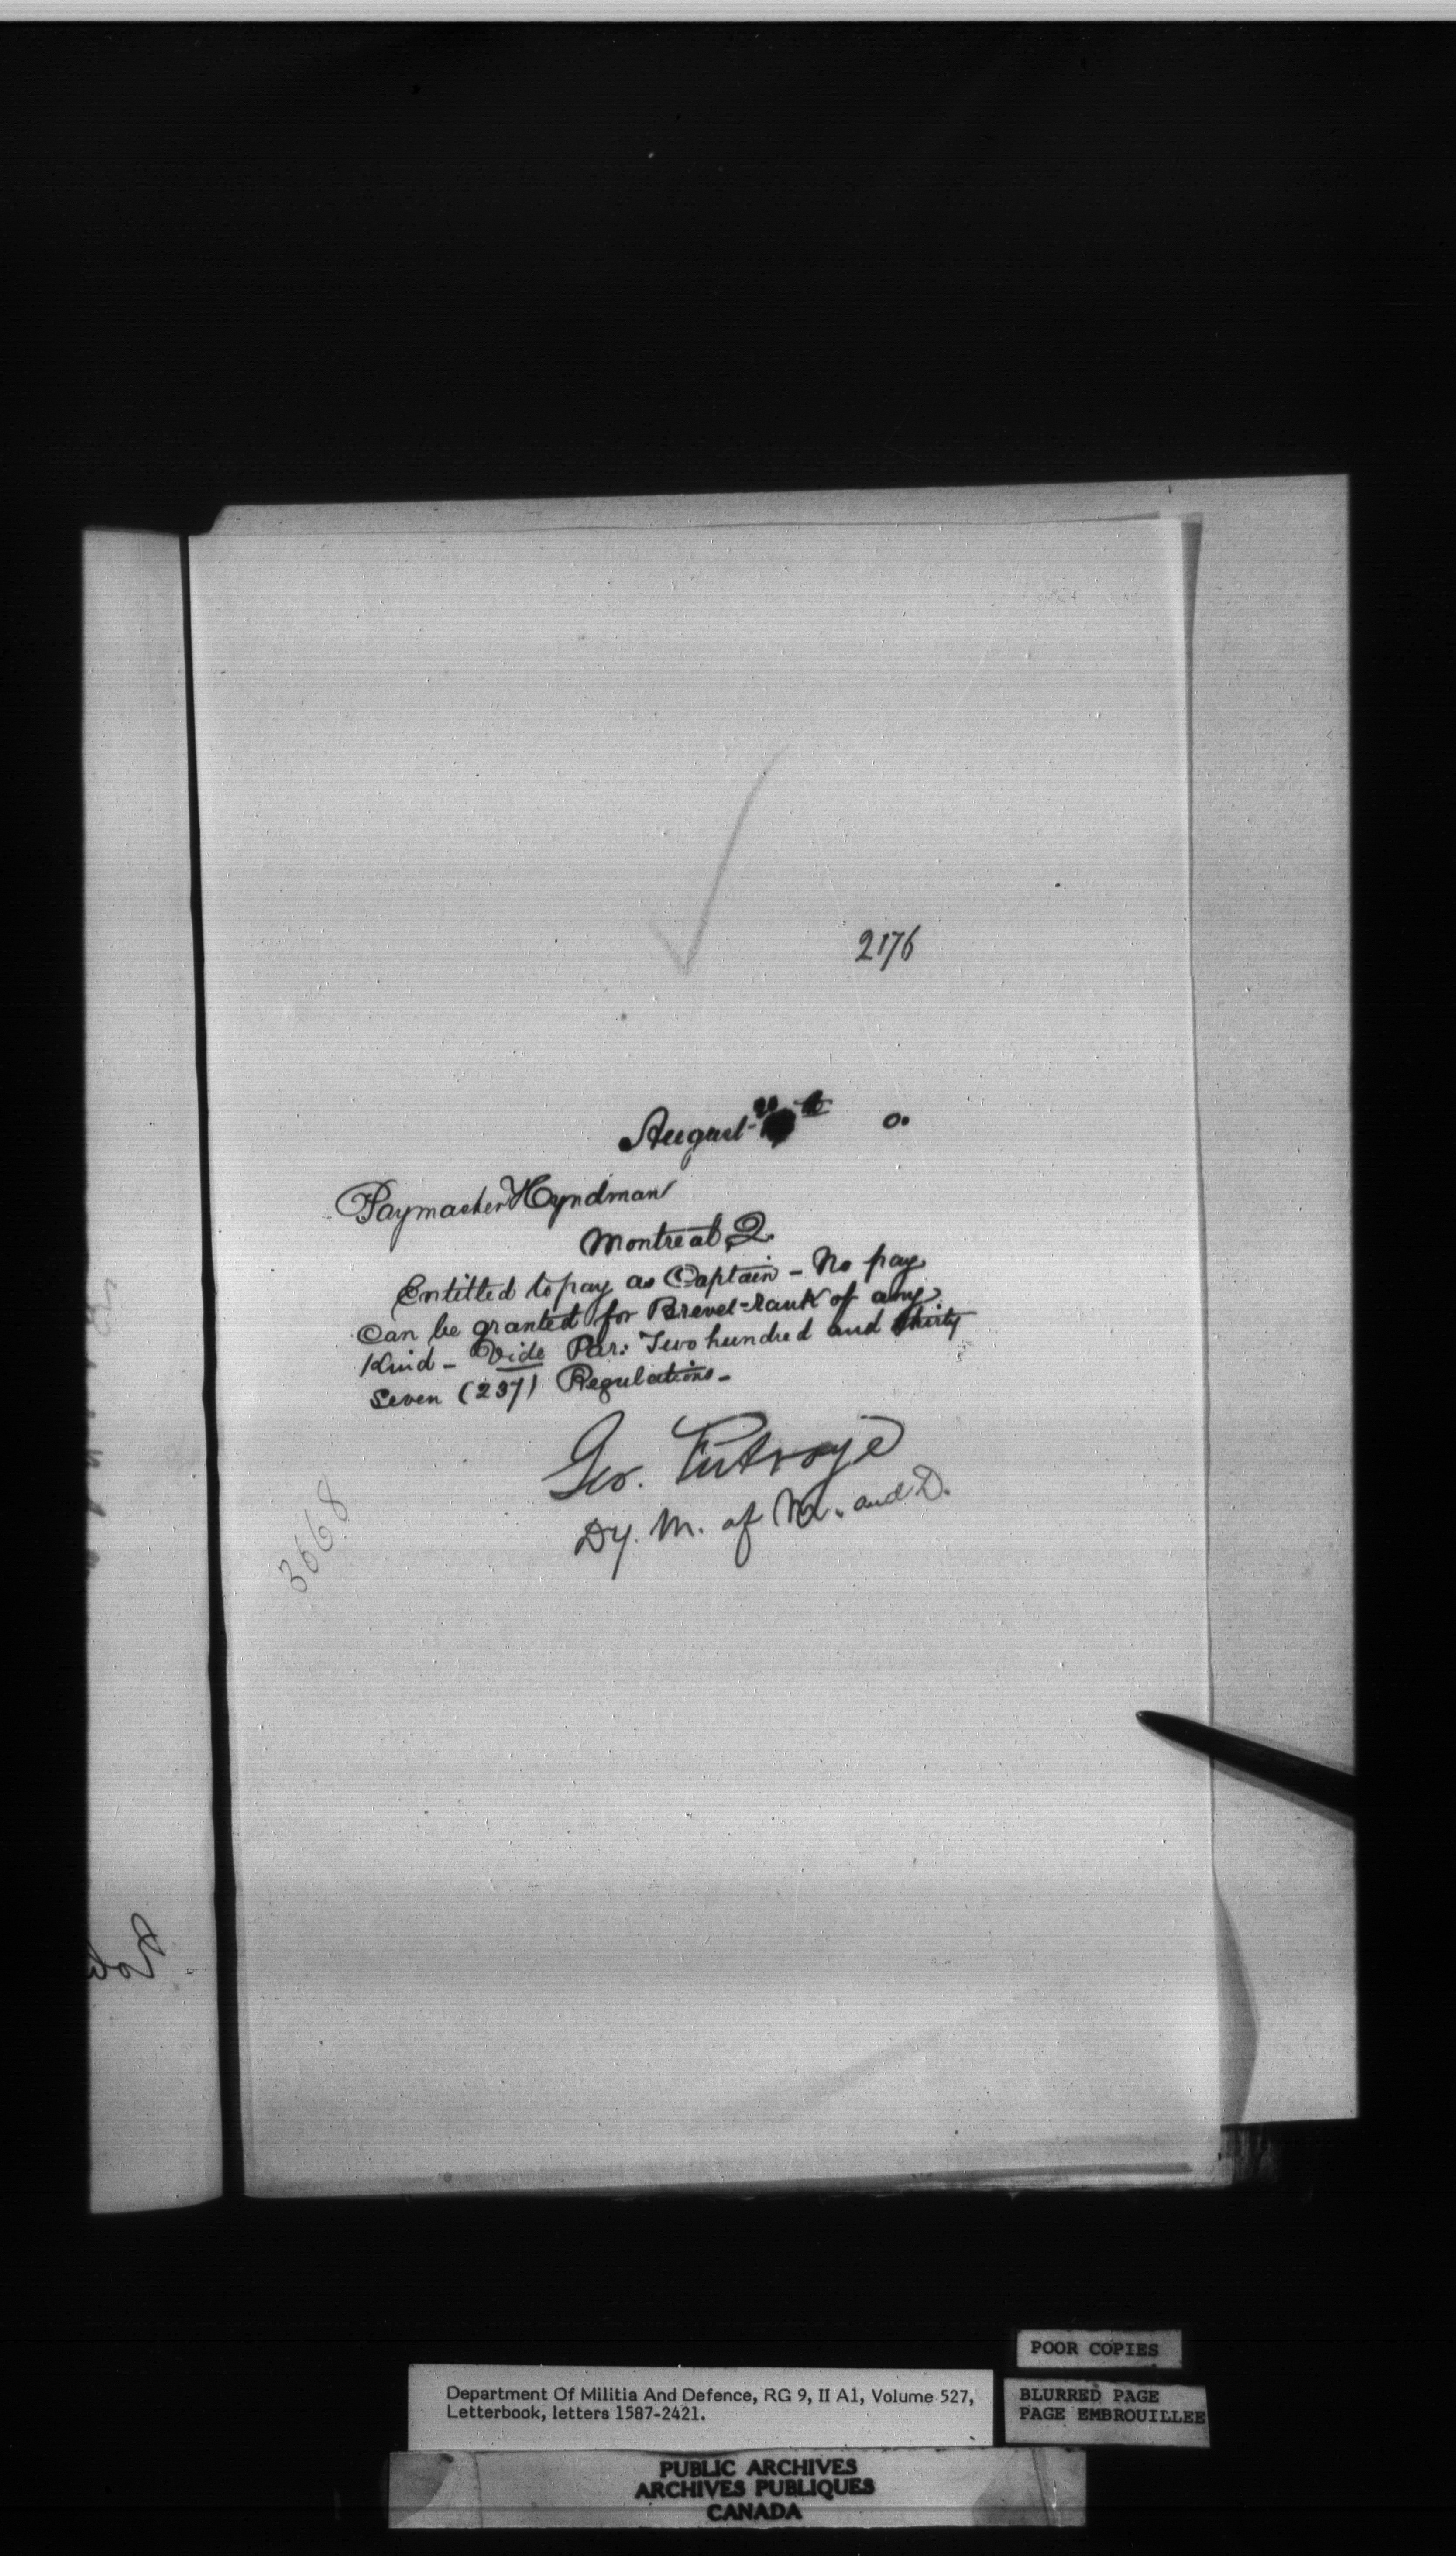 2176
August th 0.
Paymaster Hyndman
Montreal Q.
Entitled to pay as Captain - No pay
Can be granted for Brevet-rank of any
Kind - Vide Par: Two hundred and thirty
Seven (237) Regulations -
Geo. Futvoye
Dy. M. of M. and D.
3668
POOR COPIES
Department Of Militia And Defence, RG 9, II A1, Volume 527,
Letterbook, letters 1587-2421.
BLURRED PAGE
PAGE EMBROUILLEE
PUBLIC ARCHIVES
ARCHIVES PUBLIQUES
CANADA